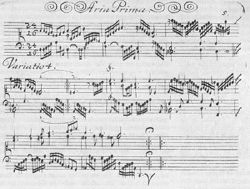 Aria Prima
5.
Variatio 4.